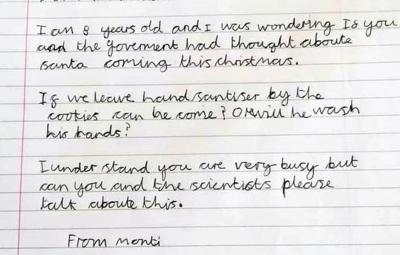 I am 8 years old and I was wondering Is you
and the goverment had thought aboute
santa coming this christmas.
If we leave hand santiser by the
cookies can he come? Or will he wash
his hands?
I under stand you are very busy but
can you and the scientists please
talk aboute this.
From monti